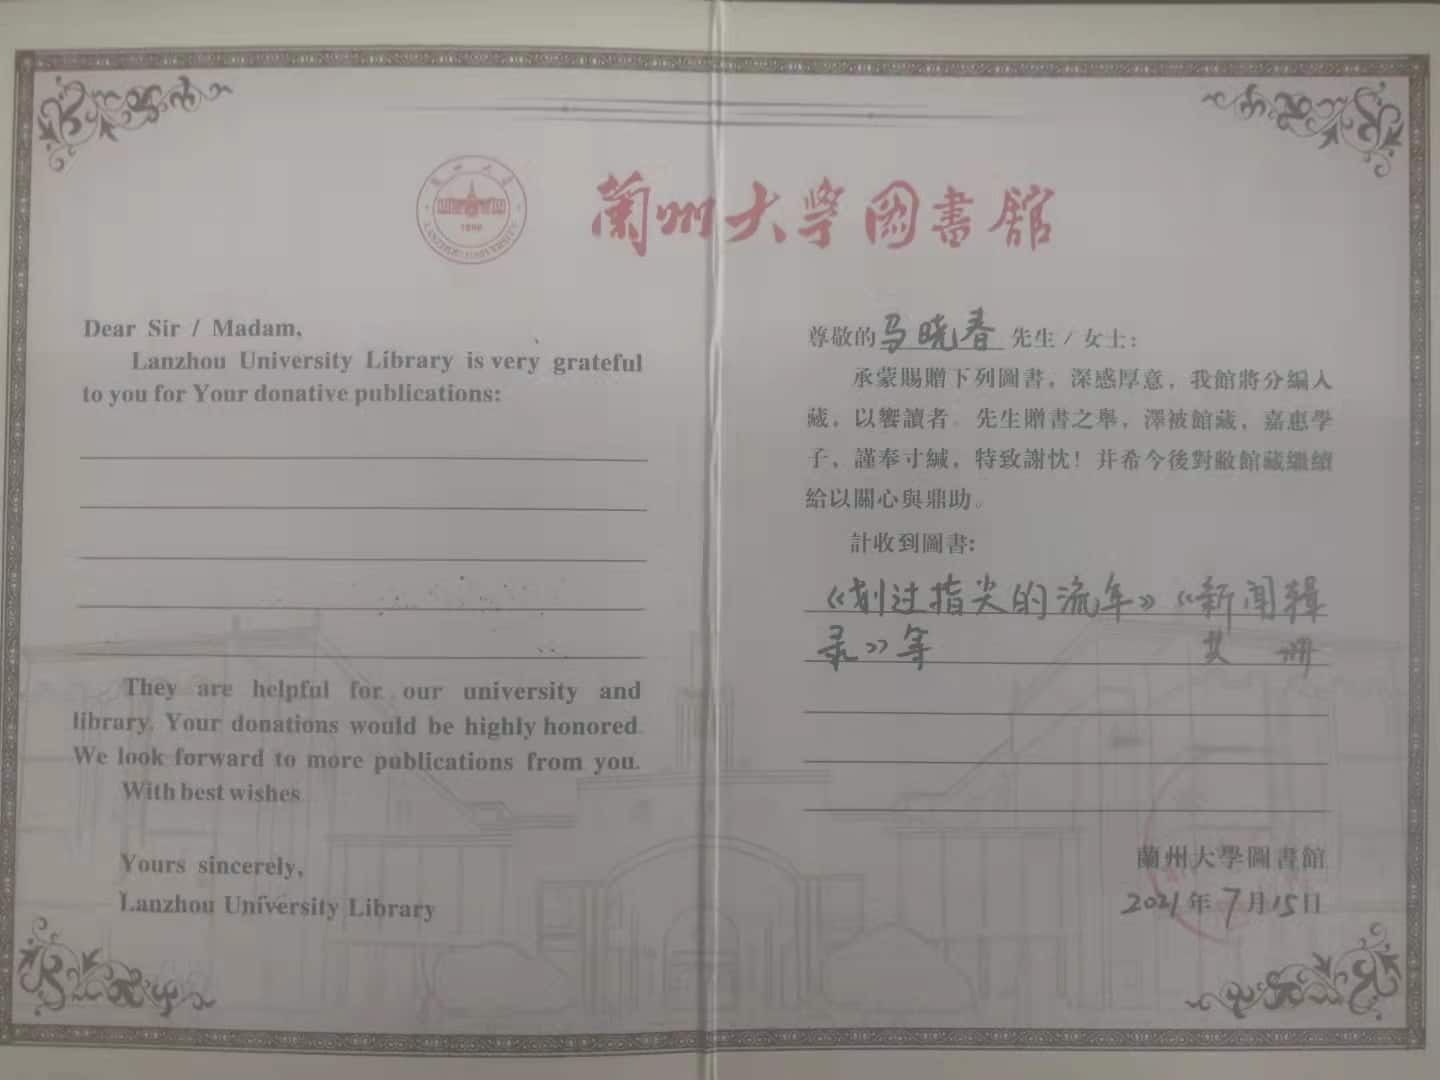 蘭州大學圖書館
蘭州大學
1909
LANZHOU UNIVERSITY
Dear Sir / Madam,
Lanzhou University Library is very grateful
to you for Your donative publications:
They are helpful for our university and
library. Your donations would be highly honored.
We look forward to more publications from you.
With best wishes
Yours sincerely,
Lanzhou University Library
尊敬的马晓春先生/女士:
承蒙賜贈下列圖書，深感厚意，我館將分編入
藏，以饗讀者。先生贈書之舉，澤被館藏，嘉惠學
子，謹奉寸緘，特致謝忱！并希今後對敝館藏繼續
給以關心與鼎助。
計收到圖書:
《划过指尖的流年》《新闻辑
录》等 共 册
蘭州大學圖書館
2021年7月15日